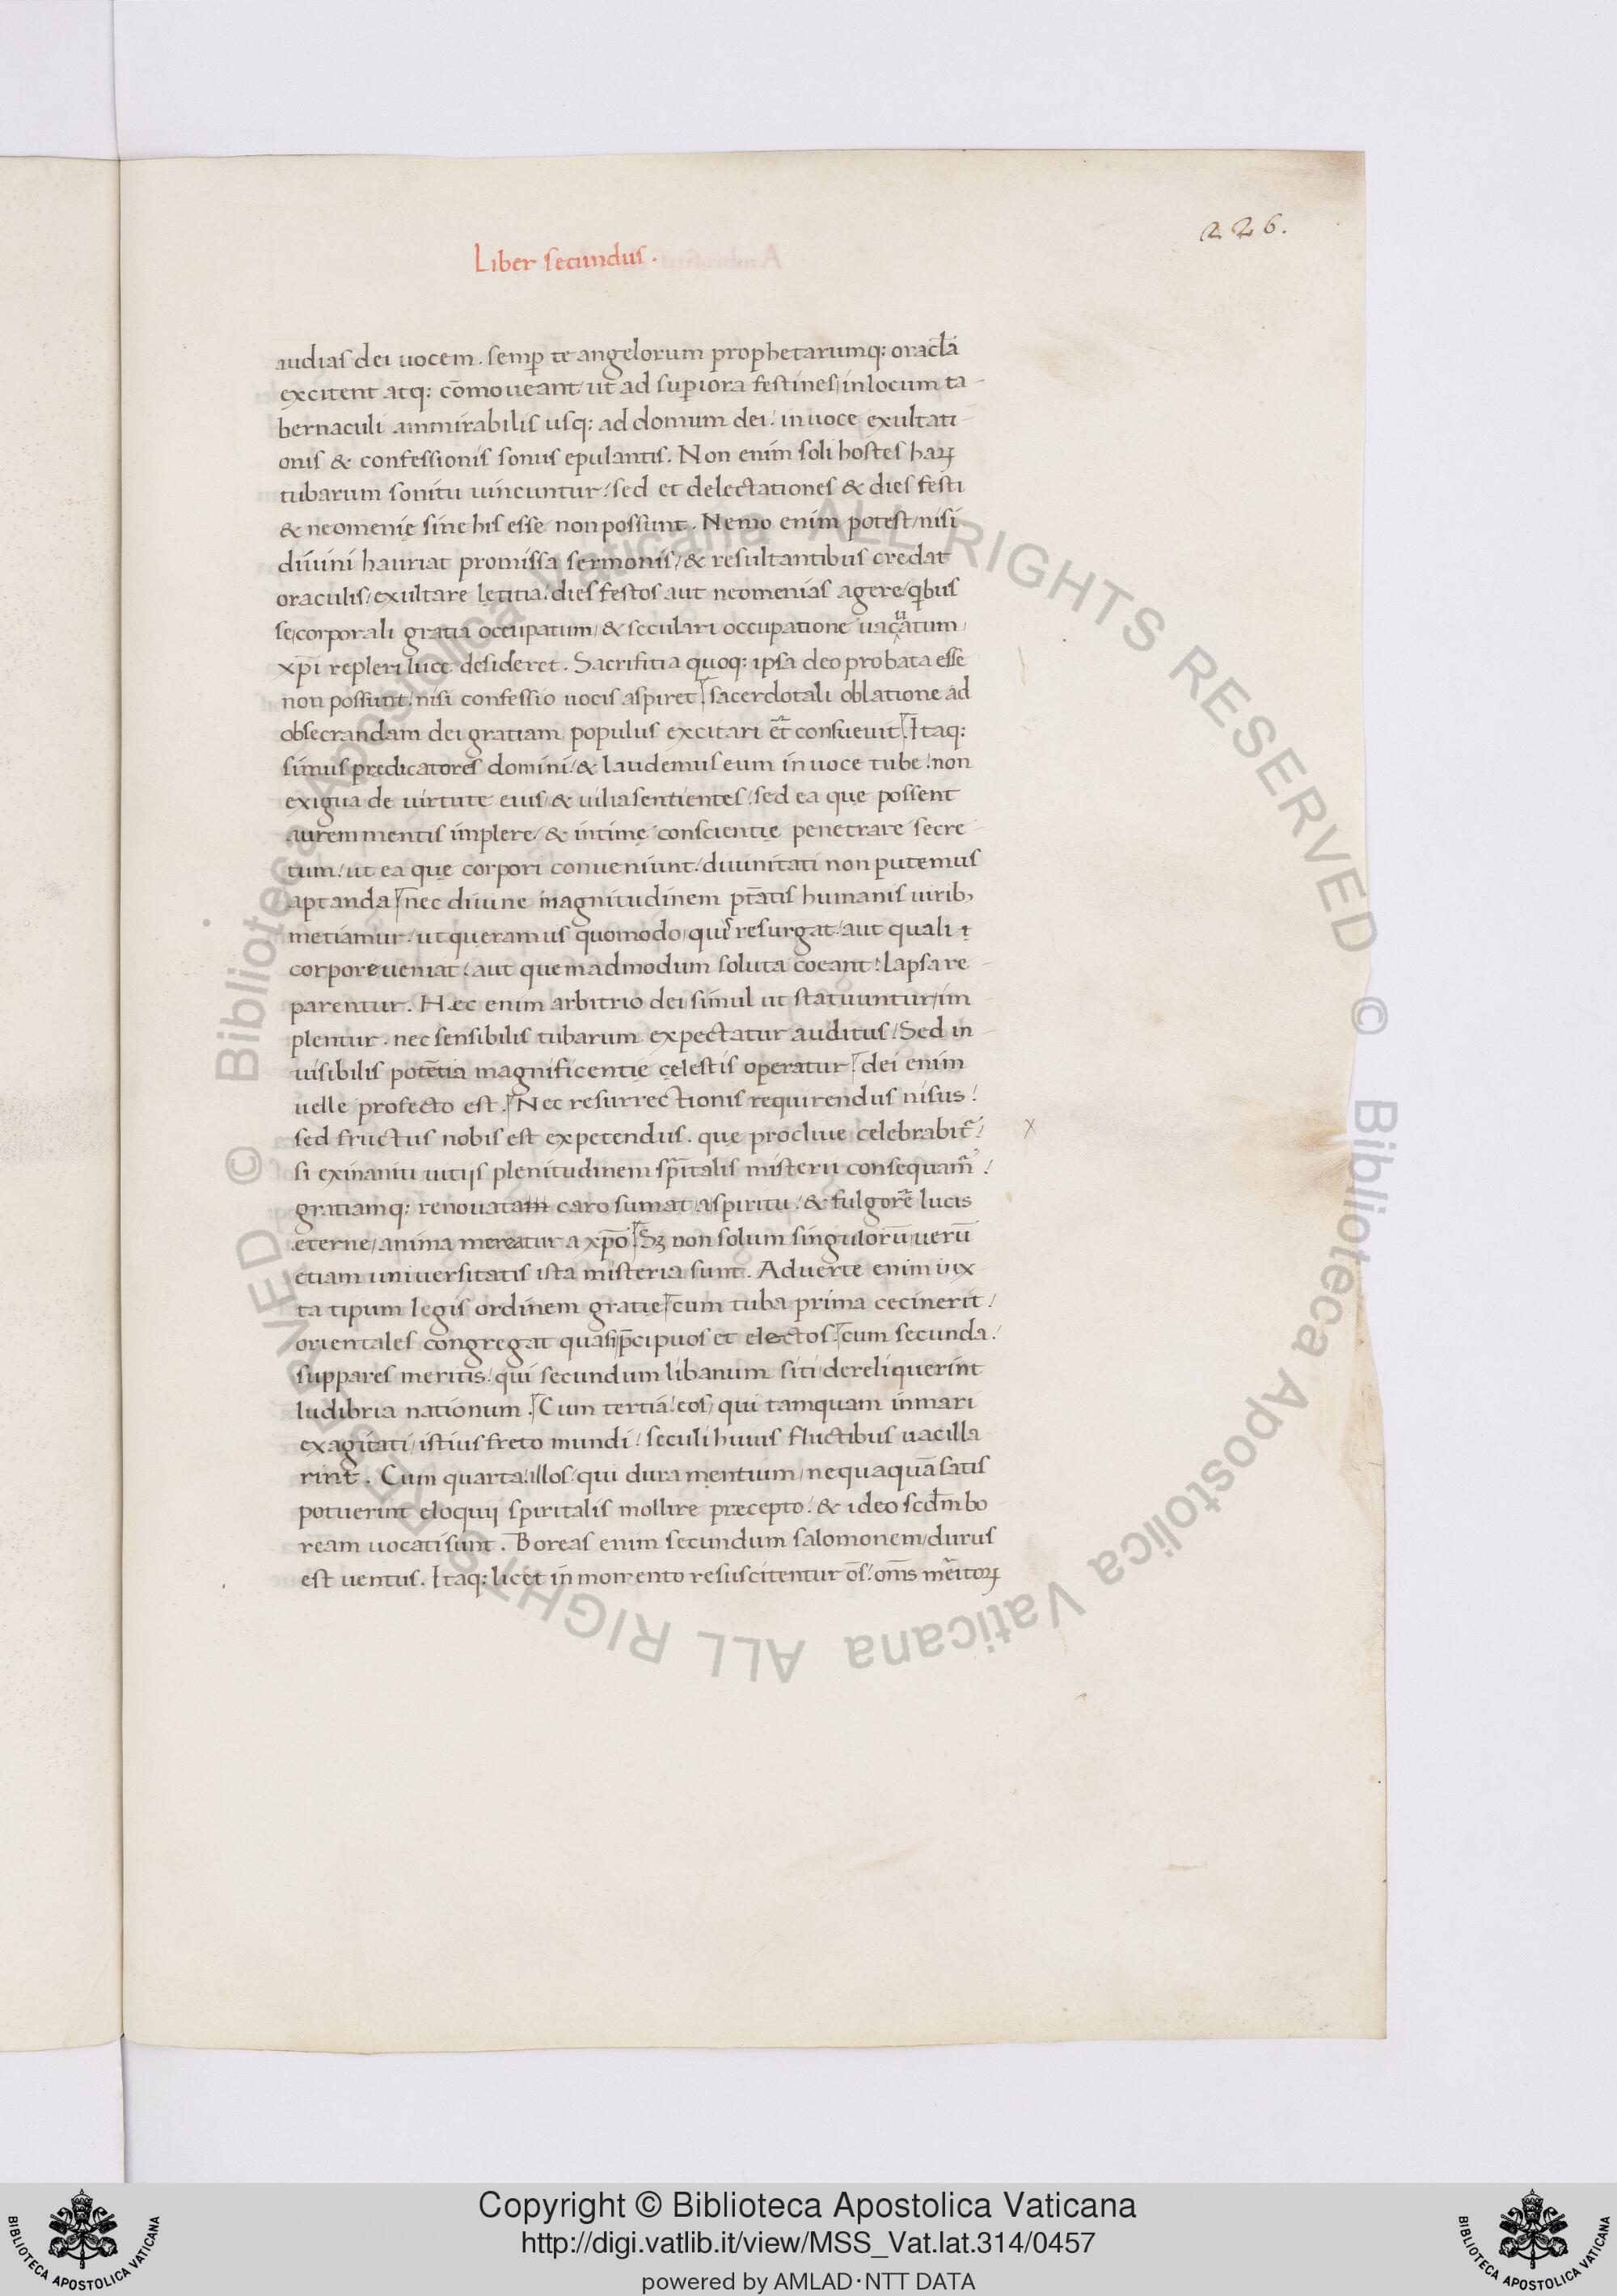 226.
Liber secundus.
audias dei uocem. semꝑ te angelorum prophetarumq: oracl̄a
excitent atq: cōmoueant/ ut ad suꝑiora festines/ in locum ta-
bernaculi ammirabilis usq: ad domum dei/ in uoce exultati-
onis & confessionis sonus epulantis. Non enim soli hostes haꝝ
tubarum sonitu uincuntur/ sed et delectationes & dies festi
& neomenię sine his esse non possunt. Nemo enim potest/ nisi
diuini hauriat promissa sermonis/ & resultantibus credat
oraculis/ exultare lętitia/ dies festos aut neomenias agere/ qbus
se/ corporali gratia occupatum/ & seculari occupatione uac^uatum/
xp̄i repleri luce desideret. Sacrifitia quoq: ipsa deo probata esse
non possunt/ nisi confessio uocis aspiret. sacerdotali oblatione ad
obsecrandam dei gratiam populus excitari et̄ consueuit. Itaq:
simus predicatores domini/ & laudemus eum in uoce tube/ non
exigua de uirtute eius/ & uilia sentientes/ sed ea quę possent
aurem mentis implere/ & intimę conscientię penetrare secre-
tum/ ut ea quę corpori conueniunt/ diuinitati non putemus
aptanda/ nec diuine magnitudinem pt̄atis humanis uirib,
metiamur/ ut quęramus quomodo/ quis resurgat/ aut quali
corpore ueniat/ aut quemadmodum soluta coeant/ lapsa re-
parentur. Hæc enim arbitrio dei simul ut statuuntur/ im-
plentur. nec sensibilis tubarum expectatur auditus/ Sed in-
uisibilis potētia magnificentię cęlestis operatur/ dei enim
uelle profecto est. Nec resurrectionis requirendus nisus/
sed fructus nobis est expetendus. quę procliue celebrabit̄/ x
si exinaniti uitijs plenitudinem spr̄italis misterii consequam̄/
gratiamq: renouatam caro sumat a spiritu/ & fulgorē lucis
eterne/ anima mereatur a xp̄o. Sꝫ non solum singulorū/ uerū
etiam uniuersitatis ista misteria sunt. Aduerte enim iux-
ta tipum legis ordinem gratię/ cum tuba prima cecinerit/
orientales congregat quasi p̄cipuos et electos/ cum secunda/
suppares meritis/ qui secundum libanum siti/ dereliquerint
ludibria nationum. Cum tertia/ eos/ qui tamquam in mari
exagitati/ istius freto mundi/ seculi huius fluctibus uacilla
rint. Cum quarta/ illos/ qui dura mentium/ nequaquā satis
potuerint eloquij spiritalis mollire præcepto/ & ideo scd̄m bo
ream uocati sunt. Boreas enim secundum salomonem/ durus
est uentus. Itaq: licet in momento resuscitentur om̄s/ om̄s mēritoꝝ
Copyright © Biblioteca Apostolica Vaticana
http://digi.vatlib.it/view/MSS_Vat.lat.314/0457
powered by AMLAD·NTT DATA
BIBLIOTECA APOSTOLICA VATICANA
BIBLIOTECA APOSTOLICA VATICANA
© Biblioteca Apostolica Vaticana ALL RIGHTS RESERVED
© Biblioteca Apostolica Vaticana ALL RIGHTS RESERVED